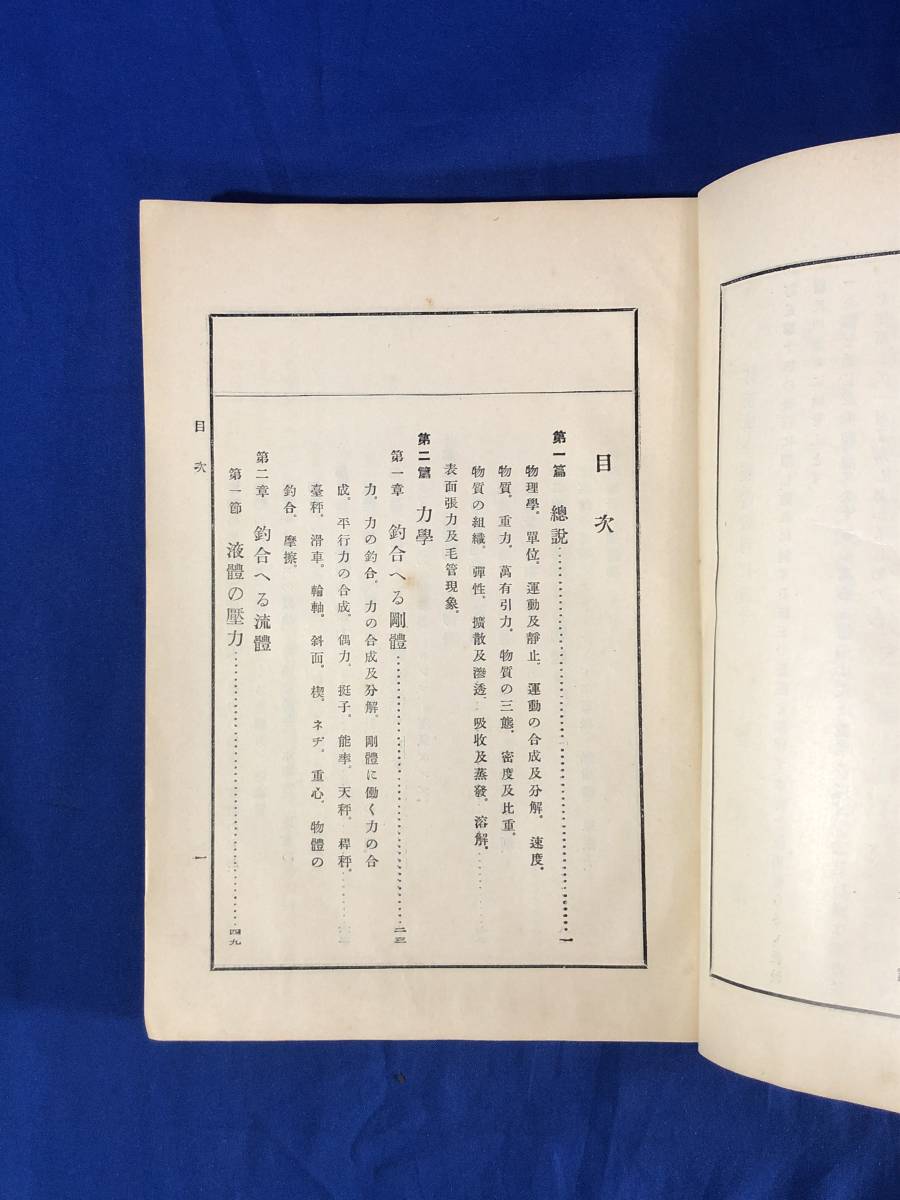 目次
第一篇 總說……一
物理學．單位．運動及靜止．運動の合成及分解．速度．
物質．重力．萬有引力．物質の三態．密度及比重．
物質の組織．彈性．擴散及滲透．吸收及蒸發．溶解．
表面張力及毛管現象．
第二篇 力學
第一章 釣合へる剛體……二三
力．力の釣合．力の合成及分解．剛體に働く力の合
成．平行力の合成．偶力．挺子．能率．天秤．稈秤．
臺秤．滑車．輪軸．斜面．楔．ネヂ．重心．物體の
釣合．摩擦．
第二章 釣合へる流體
第一節 液體の壓力……四九
目次
一